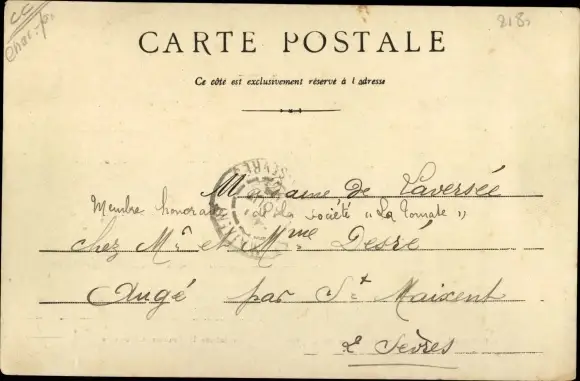 CC
Char.
818
CARTE POSTALE
Ce côté est exclusivement réservé à l'adresse
SEVRES
de Laversée
Membre honoraire de la société "La Tomate"
chez Mr et Mme Desré
Augé par St Maixent
2e Sèvres